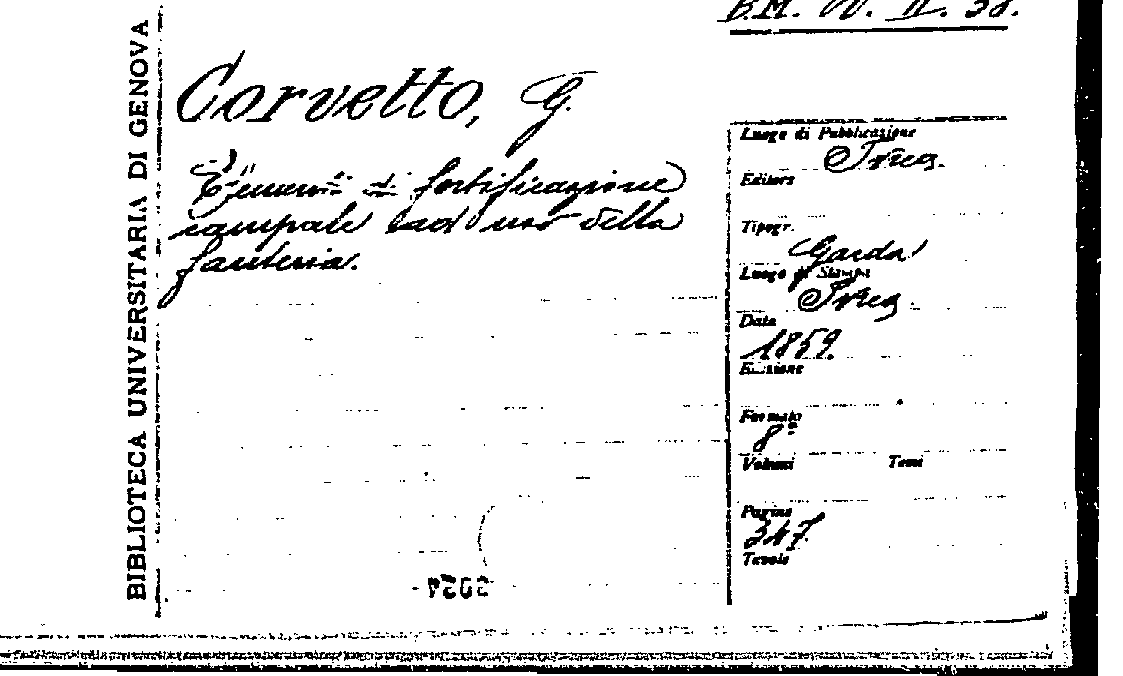 B.M. VV. II. 38.
BIBLIOTECA UNIVERSITARIA DI GENOVA
Corvetto, G.
Elementi di fortificazione
campale ad uso della
fanteria.
Luogo di Pubblicazione
Ivrea.
Editore
Tipogr.
Garda
Luogo di Stampa
Ivrea
Data
1859.
Edizione
Formato
8°
Volumi Tomi
Pagine
347
Tavole